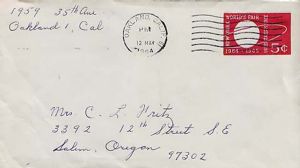 1959 35th Ave
Oakland 1, Cal
OAKLAND, CALIF.
PM
12 MAY
1964
WORLD'S FAIR
1964-1965
5¢
Mrs C. L. Fritz
3392 12th Street SE
Salem, Oregon
97302